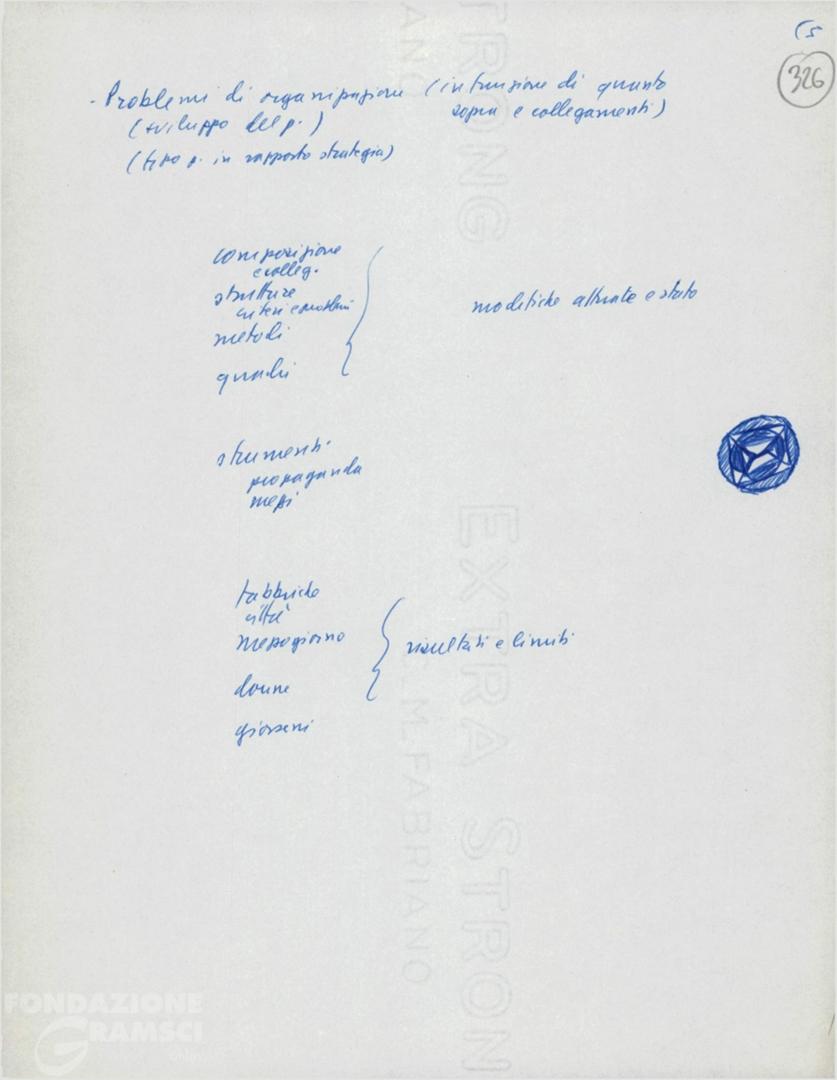 (5
326
- Problemi di organizzazione (in funzione di quanto
sopra e collegamenti)
(sviluppo del p.)
(tipo p. in rapporto strategia)
composizione
e colleg.
strutture
criteri e problemi
metodi
quadri
modifiche attuate e stato
strumenti
propaganda
mezzi
fabbriche
città
Mezzogiorno
donne
giovani
risultati e limiti
TRONG
ANO
EXTRA STRON
C.M. FABRIANO
FONDAZIONE
GRAMSCI
online